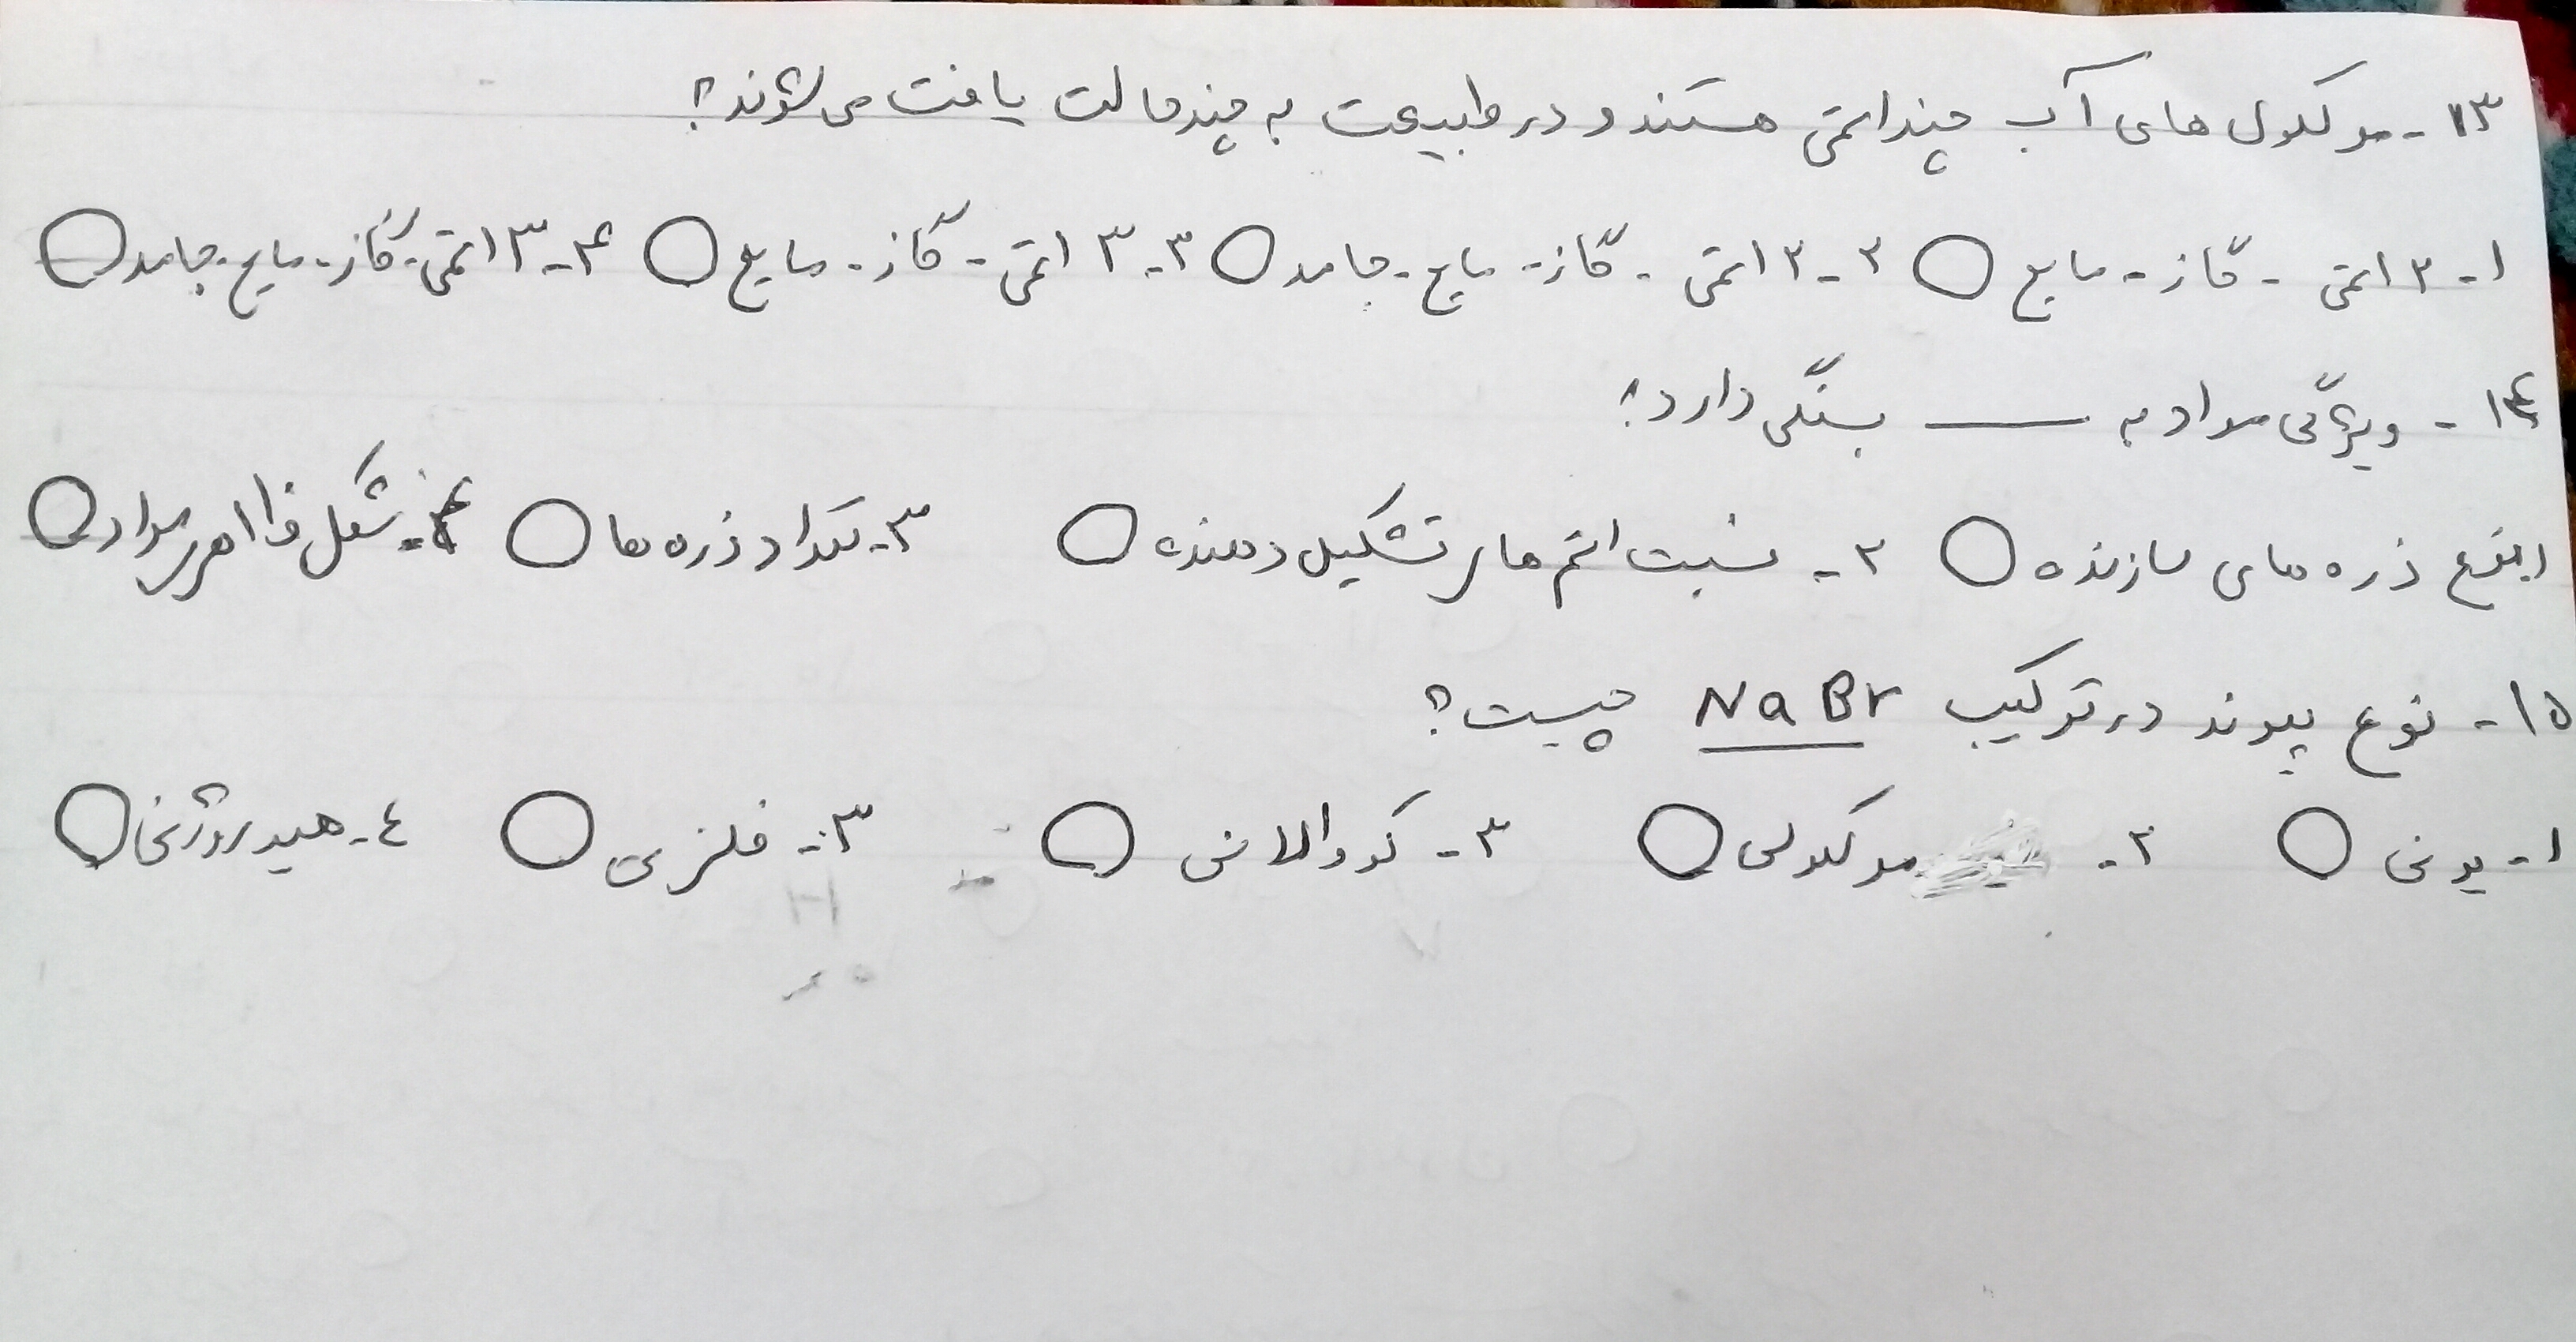 ۱۳- مولکول های آب چنداتمی هستند و در طبیعت به چند حالت یافت می شوند؟
۱- ۲ اتمی - گاز - مایع ○ ۲- ۲ اتمی - گاز - مایع - جامد ○ ۳- ۳ اتمی - گاز - مایع ○ ۴- ۳ اتمی - گاز - مایع - جامد ○
۱۴- ویژگی مواد به ــــ بستگی دارد؟
۱- نوع ذره های سازنده ○ ۲- نسبت اتم های تشکیل دهنده ○ ۳- تعداد ذره ها ○ ۴- شکل ظاهری مواد ○
۱۵- نوع پیوند در ترکیب NaBr چیست؟
۱- یونی ○ ۲- مولکولی ○ ۳- کووالانسی ○ ۳- فلزی ○ ٤- هیدروژنی ○